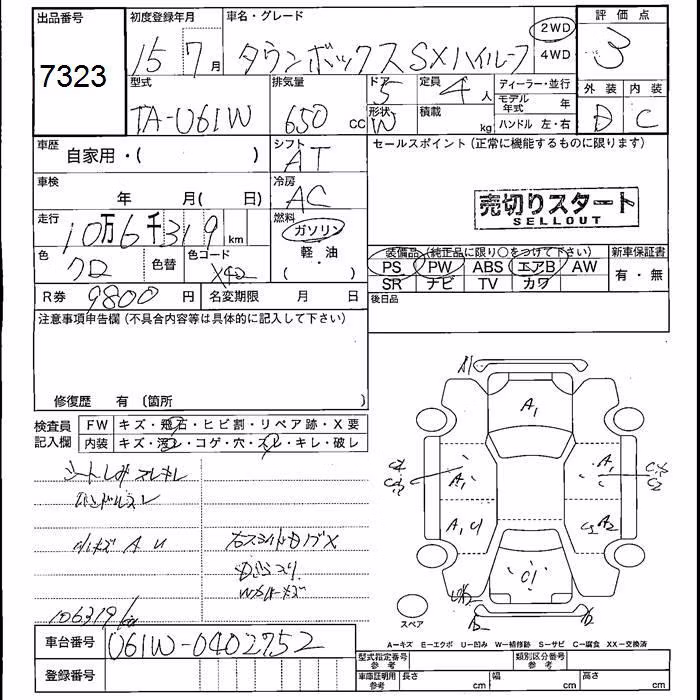 出品番号 初度登録年月 車名・グレード 評価点
7323 15 7月 タウンボックス SXハイルーフ 2WD 4WD 3
型式 排気量 ドア 5 定員 4人 ディーラー・並行 外装 内装
TA-U61W 650cc 形状 W 積載 kg モデル年式 年 D C
ハンドル 左・右
車歴 自家用・( ) シフト AT セールスポイント(正常に機能するものに限ります)
車検 年 月( 日) 冷房 AC 売切りスタート
SELLOUT
走行 10万6千319km 燃料 ガソリン
軽・油
( )
装備品 (純正品に限り○をつけて下さい) 新車保証書
色 クロ 色替 色コード X42 PS PW ABS エアB AW 有・無
SR ナビ TV カワ
R券 9800円 名変期限 月 日 後日品
注意事項申告欄(不具合内容等は具体的に記入して下さい)
修復歴 有 (箇所 )
検査員 FW キズ・飛石・ヒビ割・リペア跡・X要
記入欄 内装 キズ・汚レ・コゲ・穴・スレ・キレ・破レ
A1
A1 A1 C2
A1 C1 A2
C1
106319km
スペア
A=キズ E=エクボ U=凹み W=補修跡 S=サビ C=腐食 XX=交換済
車台番号 U61W-0402752
登録番号
型式指定番号 参考 類別区分番号 参考
車庫証明用 参考 長さ cm 幅 cm 高さ cm